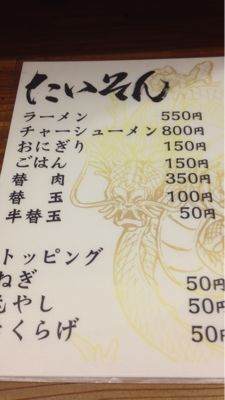 たいそん
ラーメン 550円
チャーシューメン 800円
おにぎり 150円
ごはん 150円
替肉 350円
替玉 100円
半替玉 50円
トッピング
ねぎ 50円
もやし 50円
くらげ 50円